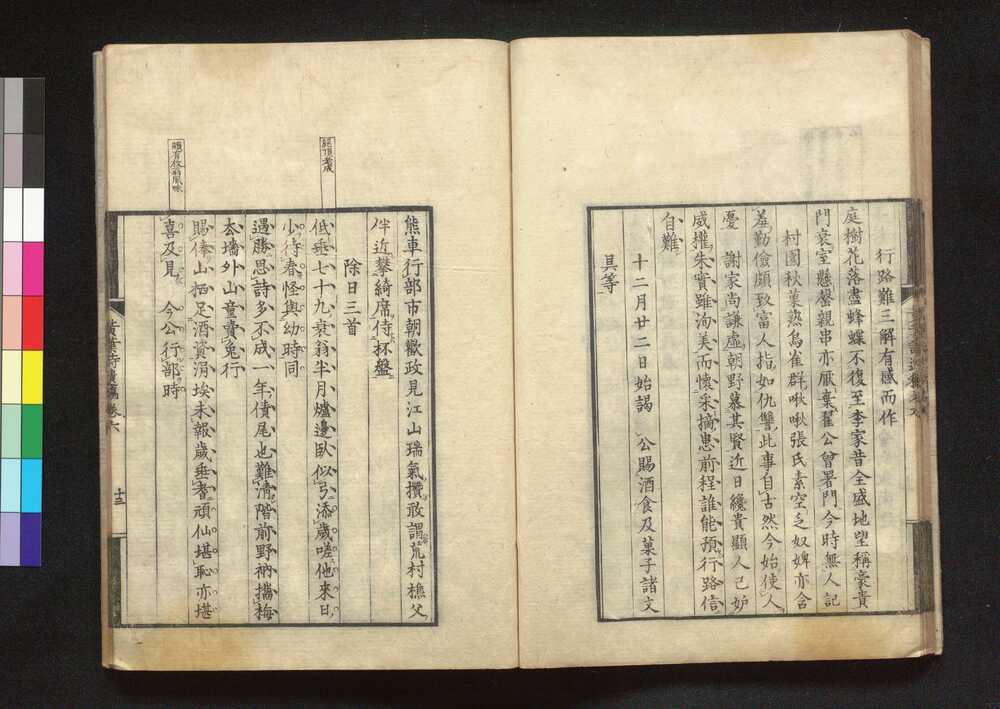 行路難三解有感而作
庭樹花落盡蜂蝶不復至李家昔全盛地望稱豪貴
門衰室懸罄親串亦厭棄翟公曾署門今時無人記
村園秋菓熟烏雀群啾啾張氏素空乏奴婢亦含
羞勤儉頗致富人指如仇讐此事自古然今始使人
憂　謝家尚謙虛朝野慕其賢近日纔貴顯人已妒
威權朱實雖洵美而懷采摘患前程誰能預行路信
自難
十二月廿二日始謁　公賜酒食及菓子諸文
具等
熊車行部市朝歡政見江山瑞氣攢敢謂荒村樵父
伴近攀綺席侍杯盤
除日三首
低垂七十九衰翁半月爐邊臥似弓添歲嗟他來日
少待春怪與幼時同
遇勝思詩多不成一年債尾也難清階前野衲攜梅
去墻外山童賣兔行
賜俸山栖足酒資涓埃未報歲垂耆頑仙堪恥亦堪
喜及見　今公行部時
頗有放翁風味
黃葉詩遺稿卷六
十三